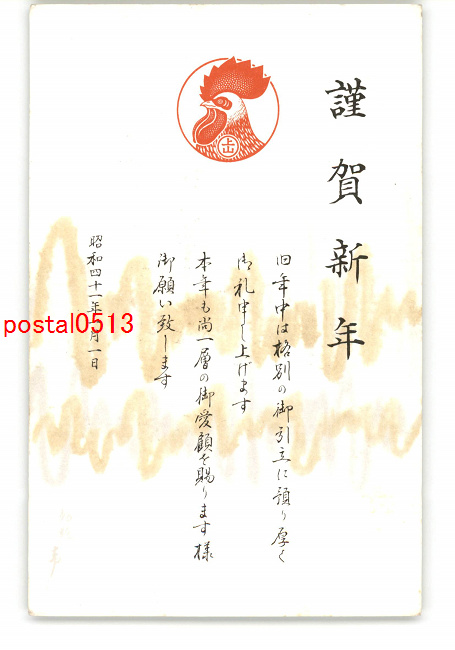 謹賀新年
旧年中は格別の御引立に預り厚く
御礼申し上げます
本年も尚一層の御愛顧を賜ります様
御願い致します
昭和四十一年 月一日
postal0513